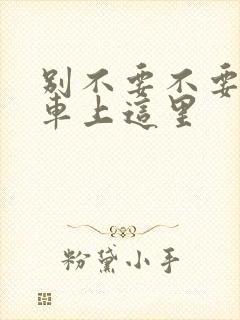 別不要不要
車上這里
粉黛小手